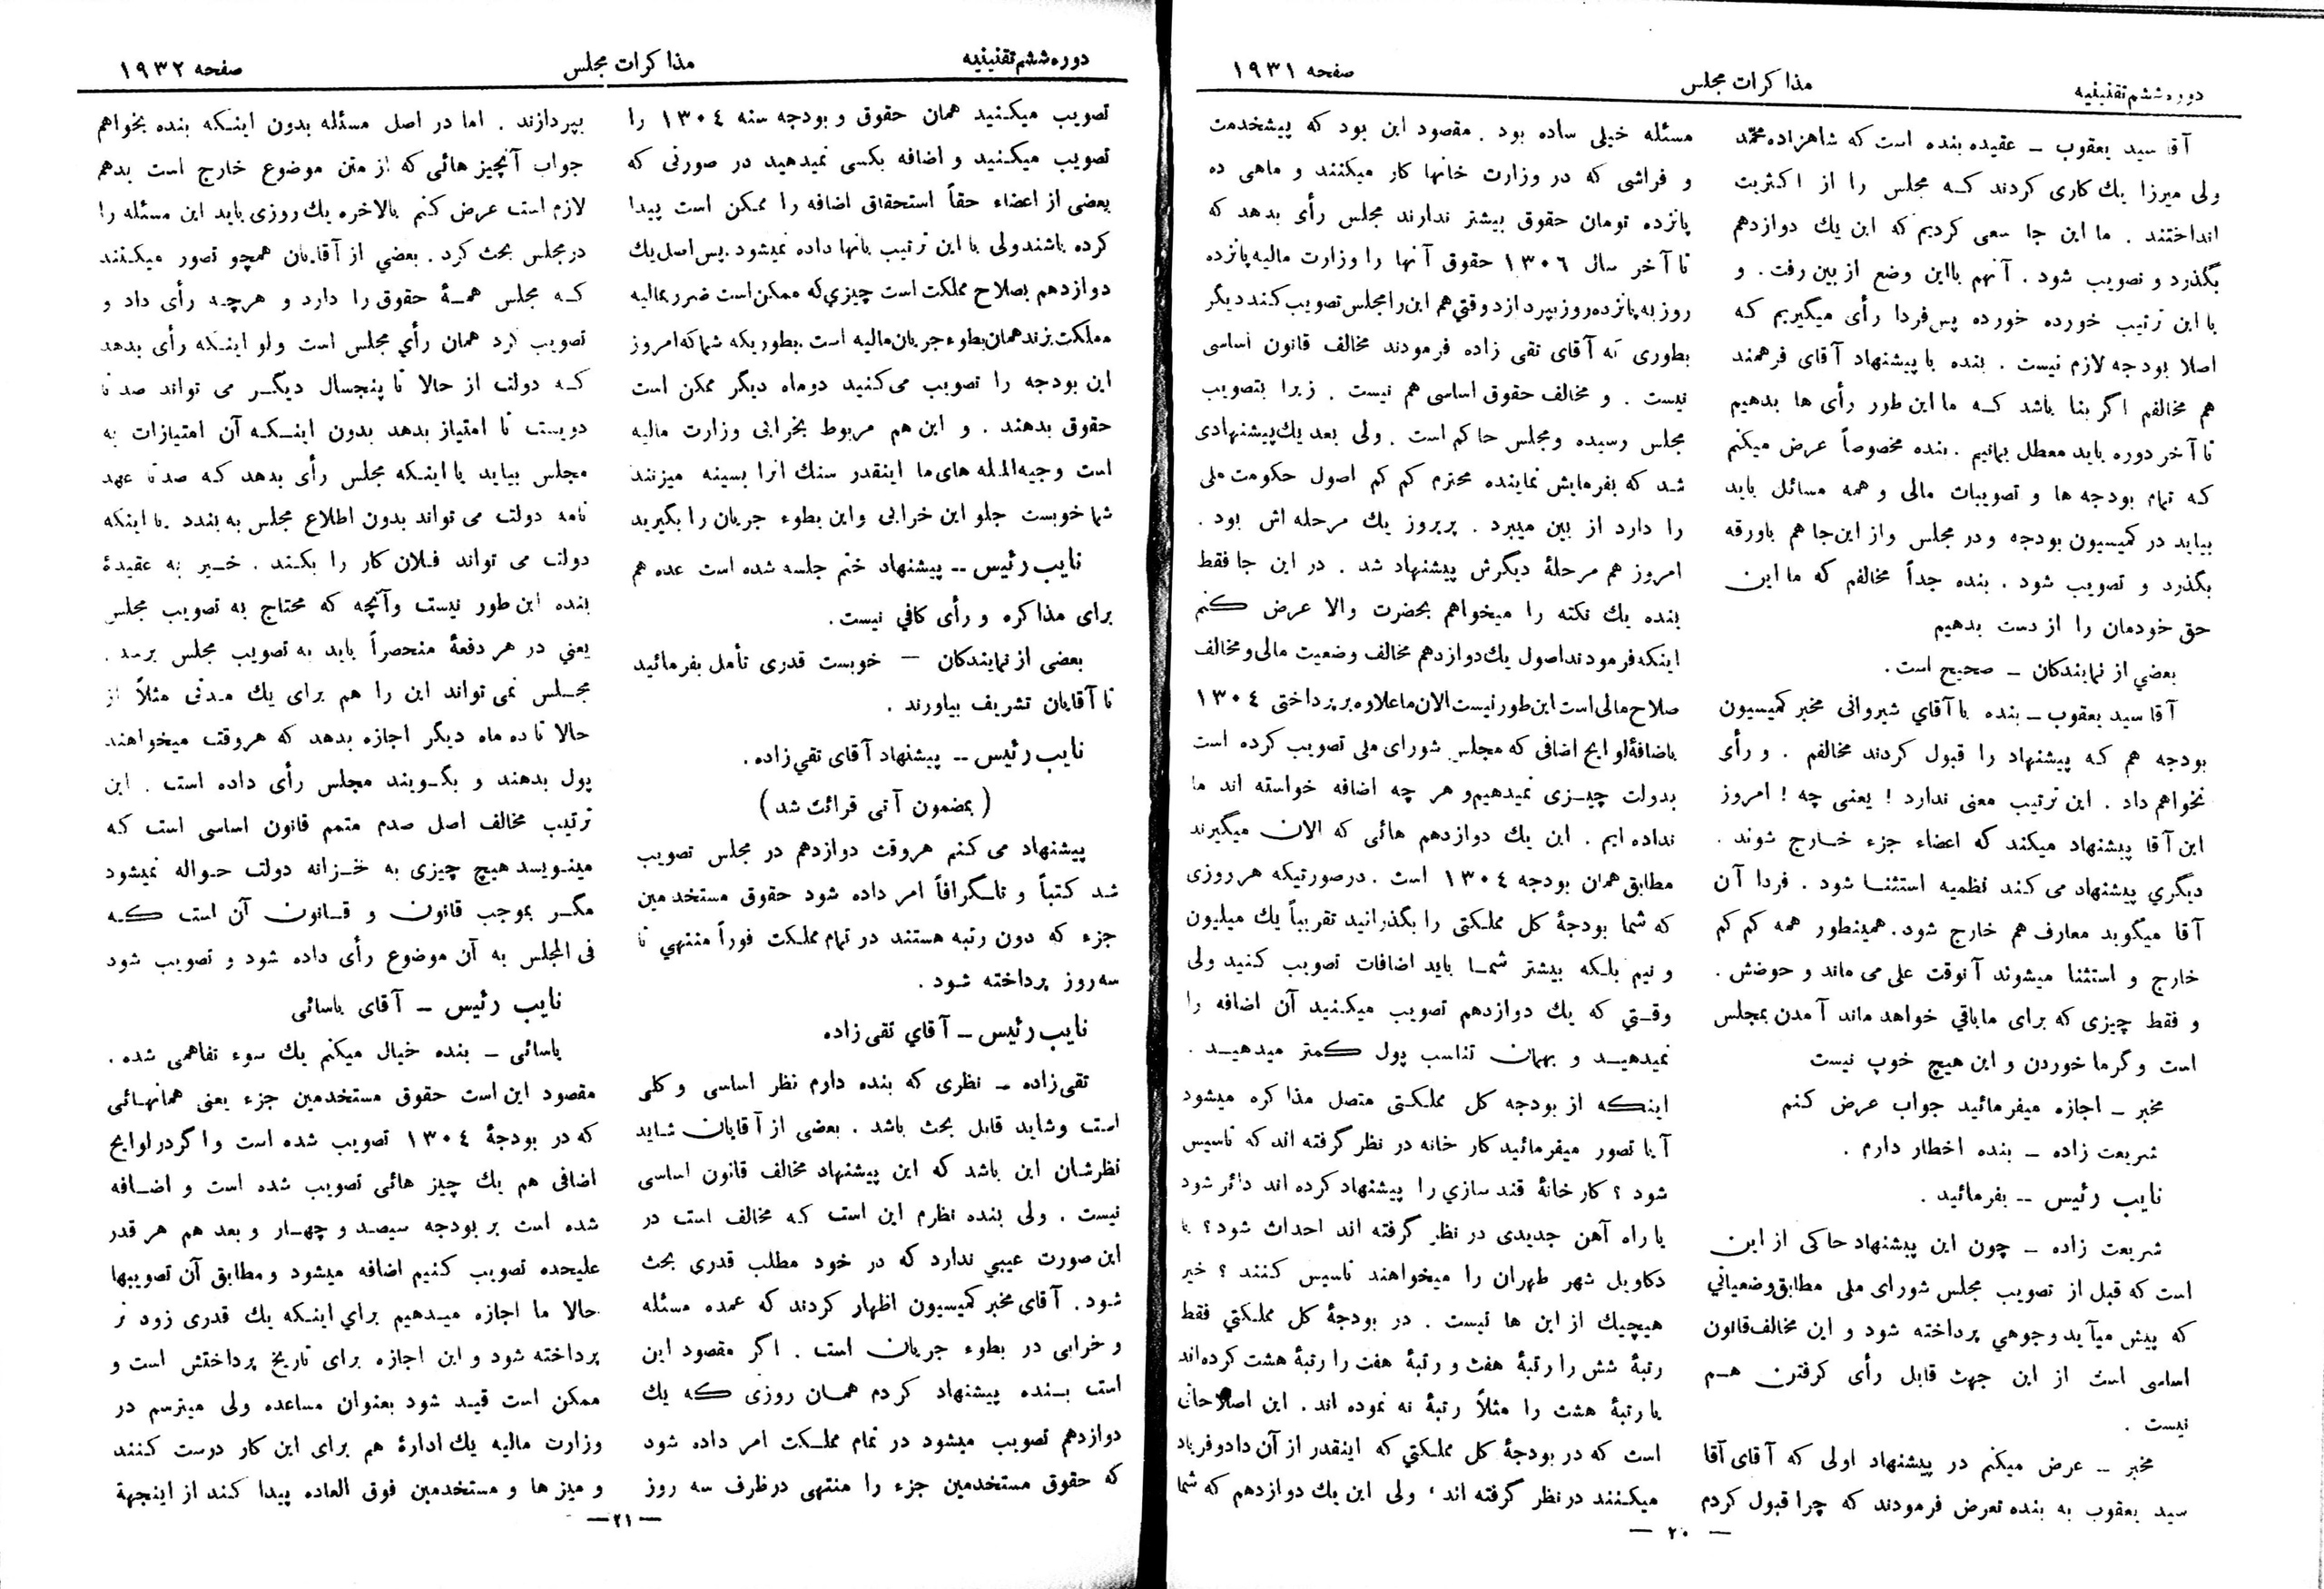 دوره ششم تقنینیه
مذاکرات مجلس
صفحه ۱۹۳۱
آقا سید یعقوب ــ عقیده بنده است که شاهزاده محمد
ولی میرزا یك کاری کردند کـه مجلس را از اکثریت
انداختند . ما این جا سعی کردیم که این یك دوازدهم
بگذرد و تصویب شود . آنهم بااین وضع از بین رفت . و
با این ترتیب خورده خورده پس‌فردا رأی میگیریم که
اصلا بودجه لازم نیست . بنده با پیشنهاد آقای فرهمند
هم مخالفم اگر بنا باشد کـه ما این طور رأی ها بدهیم
تا آخر دوره باید معطل بمانیم . بنده مخصوصاً عرض میکنم
که تمام بودجه ها و تصویبات مالی و همه مسائل باید
بیاید در کمیسیون بودجه و در مجلس و از این‌جا هم باورقه
بگذرد و تصویب شود . بنده جداً مخالفم که ما این
حق خودمان را از دست بدهیم
بعضي از نمایندکان ــ صحیح است .
آقا سید یعقوب ــ بنده با آقاي شیروانی مخبر کمیسیون
بودجه هم کـه پیشنهاد را قبول کردند مخالفم . و رأی
نخواهم داد . این ترتیب معنی ندارد ! یعنی چه ! امروز
این آقا پیشنهاد میکند که اعضاء جزء خـارج شوند .
دیگري پیشنهاد می کند نظمیه استثنـا شود . فردا آن
آقا میگوید معارف هم خارج شود . همینطور همه کم کم
خارج و استثنا میشوند آنوقت علی می ماند و حوضش .
و فقط چیزی که برای ماباقي خواهد ماند آمدن بمجلس
است و گرما خوردن و این هیچ خوب نیست
مخبر ــ اجازه میفرمائید جواب عرض کنم
شریعت زاده ــ بنده اخطار دارم .
نایب رئیس ــ بفرمائید .
شریعت زاده ــ چون این پیشنهاد حاکی از این
است که قبل از تصویب مجلس شورای ملی مطابق وضعیاتي
که پیش میآید وجوهي پرداخته شود و این مخالف قانون
اساسی است از این جهت قابل رأی کرفتن هـم
نیست .
مخبر ــ عرض میکنم در پیشنهاد اولی که آقای آقا
سید یعقوب به بنده تعرض فرمودند که چرا قبول کردم
مسئله خیلی ساده بود . مقصود این بود که پیشخدمت
و فراشی که در وزارت خانها کار میکنند و ماهی ده
پانزده تومان حقوق بیشتر ندارند مجلس رأی بدهد که
تا آخر سال ۱۳۰۶ حقوق آنها را وزارت مالیه پانزده
روز به پانزده روز بپردازد وقتي هم این را مجلس تصویب کند دیگر
بطوری که آقای تقی زاده فرمودند مخالف قانون اساسی
نیست . و مخالف حقوق اساسی هم نیست . زیرا بتصویب
مجلس رسیده و مجلس حاکم است . ولی بعد یك پیشنهادی
شـد که بفرمایش نماینده محترم کم کم اصول حکومت ملی
را دارد از بین میبرد . پریروز یك مرحله اش بود .
امروز هم مرحلهٔ دیگرش پیشنهاد شد . در این جا فقط
بنده یك نکته را میخواهم بحضرت والا عرض کنم
اینکه فرمودند اصول یك دوازدهم مخالف وضعیت مالی و مخالف
صلاح مالی است این طور نیست الان ما علاوه بر پرداختی ۱۳۰۴
باضافهٔ لوایح اضافی که مجلس شورای ملی تصویب کرده است
بدولت چیـزی نمیدهیم و هر چه اضافه خواسته اند ما
نداده ایم . این یك دوازدهم هائی که الان میگیرند
مطابق همان بودجه ۱۳۰۴ است . در صورتیکه هر روزی
که شما بودجهٔ کل مملکتی را بگذرانید تقریباً یك میلیون
و نیم بلـکه بیشتر شمـا باید اضافات تصویب کنید ولی
وقـتي که یك دوازدهم تصویب میکـنید آن اضافه را
نمیدهیـد و بهمان تناسب پول کمتر میدهیـد .
اینکه از بودجه کل مملکتی متصل مذاکره میشود
آیا تصور میفرمائید کار خانه در نظر گرفته اند که تاسیس
شود ؟ کارخانهٔ قند سازي را پیشنهاد کرده اند دائر شود
یا راه آهن جدیدی در نظر گرفته اند احداث شود ؟ یا
دکاویل شهر طهران را میخواهند تاسیس کنند ؟ خیر
هیچیك از این ها نیست . در بودجهٔ کل مملکتي فقط
رتبهٔ شش را رتبهٔ هفت و رتبهٔ هفت را رتبهٔ هشت کرده‌اند
یا رتبهٔ هشت را مثلاً رتبهٔ نه نموده اند . این اصلاحاتی
است که در بودجهٔ کل مملکتي که اینقدر از آن داد و فریاد
میکـنند در نظر گرفته اند ، ولی این یك دوازدهم که شما
— ۲۰ —
دوره ششم تقنینیه
مذاکرات مجلس
صفحه ۱۹۳۲
تصویب میکـنید همان حقوق و بودجه سنه ۱۳۰۴ را
تصویب میکـنید و اضافه بکسی نمیدهید در صورتی که
بعضی از اعضاء حقاً استحقاق اضافه را ممکن است پیدا
کرده باشند ولی با این ترتیب بانها داده نمیشود . پس اصل یك
دوازدهم بصلاح مملکت است چیزي که ممکن است ضرر بمالیه
مملکت بزند همان بطوء جریان مالیه است . بطوریکه شما که امروز
این بودجه را تصویب می‌کنید دوماه دیگر ممکن است
حقوق بدهند . و این هم مربوط بخرابی وزارت مالیه
است وجیه‌الـمله های ما اینقدر سنك انرا بسینه میزنند
شما خوبست جلو این خرابی و این بطوء جریان را بگیرید
نایب رئیس ــ پیشنهاد ختم جلسه شده است عده هم
برای مذاکره و رأی کافي نیست .
بعضی از نمایندکان — خوبست قدری تأمل بفرمائید
تا آقایان تشریف بیاورند .
نایب رئیس ــ پیشنهاد آقای تقي زاده .
( بمضمون آتی قرائت شد )
پیشنهاد می کـنم هروقت دوازدهم در مجلس تصویب
شد کتباً و تلـگرافاً امر داده شود حقوق مستخدمین
جزء که دون رتبه هستند در تمام مملکت فوراً منتهي تا
سه روز پرداخته شود .
نایب رئیس ــ آقاي تقی زاده
تقی زاده ــ نظری که بنده دارم نظر اساسی و کلی
است و شاید قابل بحث باشد . بعضی از آقایان شاید
نظرشان این باشد که این پیشنهاد مخالف قانون اساسی
نیست . ولی بنده نظرم این است که مخالف است در
این صورت عیبي ندارد که در خود مطلب قدری بحث
شود . آقای مخبر کمیسیون اظهار کردند که عمده مسئله
و خرابی در بطوء جریان است . اگر مقصود این
است بـنده پیشنهاد کردم همان روزی که یك
دوازدهم تصویب میشود در تمام مملـکت امر داده شود
که حقوق مستخدمین جزء را منتهی در ظرف سه روز
بپردازند . اما در اصل مسئله بدون اینـکه بنده بخواهم
جواب آنچیز هائی که از متن موضوع خارج است بدهم
لازم است عرض کنم بالاخره یك روزی باید این مسئله را
در مجلس بحث کرد . بعضي از آقایان همچو تصور میکـنند
کـه مجلس همـهٔ حقوق را دارد و هرچـه رأی داد و
تصویب کرد همان رأي مجلس است ولو اینـکه رأی بدهد
کـه دولت از حالا تا پنجسال دیگـر می تواند صد تا
دویست تا امتیاز بدهد بدون اینـکـه آن امتیازات به
مجلس بیاید یا اینـکه مجلس رأی بدهد کـه صد تا عهد
نامه دولت می تواند بدون اطلاع مجلس به بندد . یا اینکه
دولت می تواند فـلان کار را بکـند . خـیر به عقیدهٔ
بنده این طور نیست و آنچه که محتاج به تصویب مجلس
یعني در هر دفعهٔ منحصراً باید به تصویب مجلس برسد .
مجـلس نمی تواند این را هم برای یك مـدتی مثلاً از
حالا تا ده ماه دیگر اجازه بدهد که هروقت میخواهند
پول بدهند و بگـویند مجلس رأی داده است . این
ترتیب مخالف اصل صدم متمم قانون اساسی است کـه
مینـویسد هیچ چیزی به خـزانه دولت حـواله نمیشود
مگـر بموجب قانون و قـانون آن است کـه
فی المجلس به آن موضوع رأی داده شود و تصویب شود
نایب رئیس ــ آقای یاسائی
یاسائی ــ بنده خیال میکنم یك سوء تفاهمی شده .
مقصود این است حقوق مستخدمین جزء یعنی همانهـائی
که در بودجهٔ ۱۳۰۴ تصویب شده است و اگر در لوایح
اضافی هم یك چیز هائی تصویب شده است و اضـافه
شده است بر بودجه سیصـد و چهـار و بعد هم هر قدر
علیحده تصویب کنیم اضافه میشود و مطابق آن تصویبها
حالا ما اجازه میـدهیم براي اینـکه یك قدری زود تر
پرداخته شود و این اجازه برای تاریخ پرداختش است و
ممکن است قیـد شود بعنوان مساعده ولی میترسم در
وزارت مالیه یك ادارهٔ هم برای این کار درست کـنند
و میز ها و مستخدمین فوق العاده پیدا کـند از اینجهة
—۲۱—